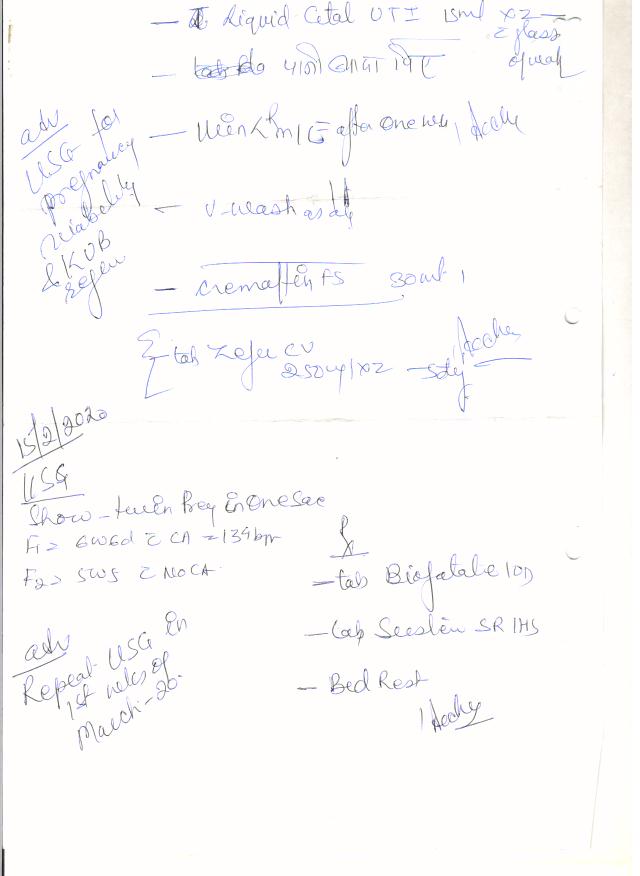 — Liquid Cetal UTI 15ml x2 —
c̄ glass
of water
— पानी ज्यादा पिए
adv
USG for
pregnancy
viability
& KUB
region
— Urine R/M/E after one week
— V-wash as dly
— Cremaffin FS 30ml
tab Zefu CV
250mg x2 — 5dy
15/2/2020
USG
Show - twin Preg in One Sac
F1 = 6W6d c̄ CA = 134bpm
F2 = 5W5 c̄ No CA.
Rx
— tab Biofatabe 1OD
— Cap Susten SR 1HS
— Bed Rest
adv
Repeat USG in
1st week of
March-20.